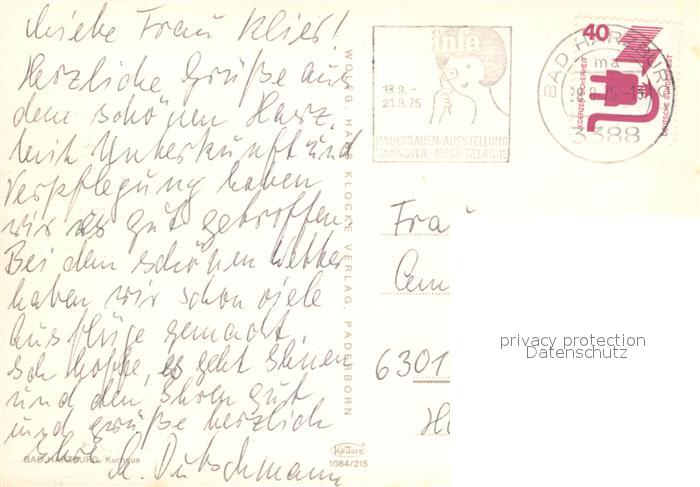 Liebe Frau Klier!
Herzliche Grüße aus
dem schönen Harz.
Mit Unterkunft und
Verpflegung haben
wir es gut getroffen.
Bei dem schönen Wetter
haben wir schon viele
Ausflüge gemacht.
Ich hoffe, es geht Ihnen
und den Ihren gut
und grüße herzlich
Ihre
Deutschmann
BAD HARZBURG, Kurhaus
WOLFG. HANS KLOCKE VERLAG, PADERBORN
KRÜGER
1084/215
infa
13.9.-
21.9.75
HAUSFRAUEN-AUSSTELLUNG
HANNOVER-MESSEGELÄNDE
BAD HARZBURG
ma
3388
40
JEDERZEIT SICHERHEIT
DEUTSCHE BUNDESPOST
Frau
6301
privacy protection
Datenschutz